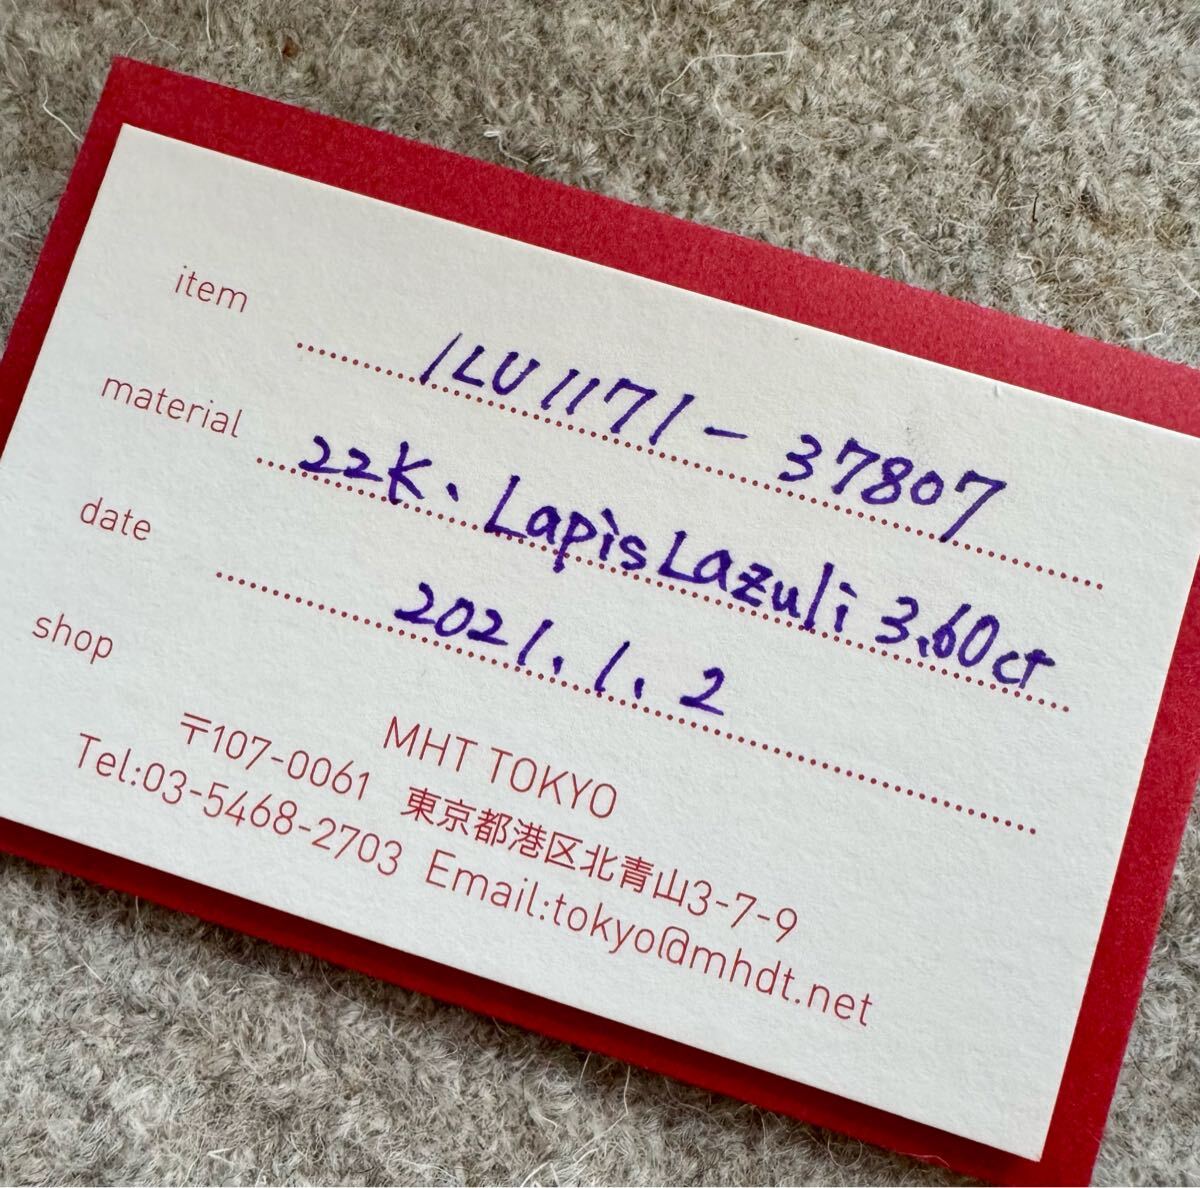 item 1LU1171-37807
material 22K、Lapis Lazuli 3.60ct
date 2021.1.2
shop MHT TOKYO
〒107-0061 東京都港区北青山3-7-9
Tel:03-5468-2703 Email:tokyo@mhdt.net